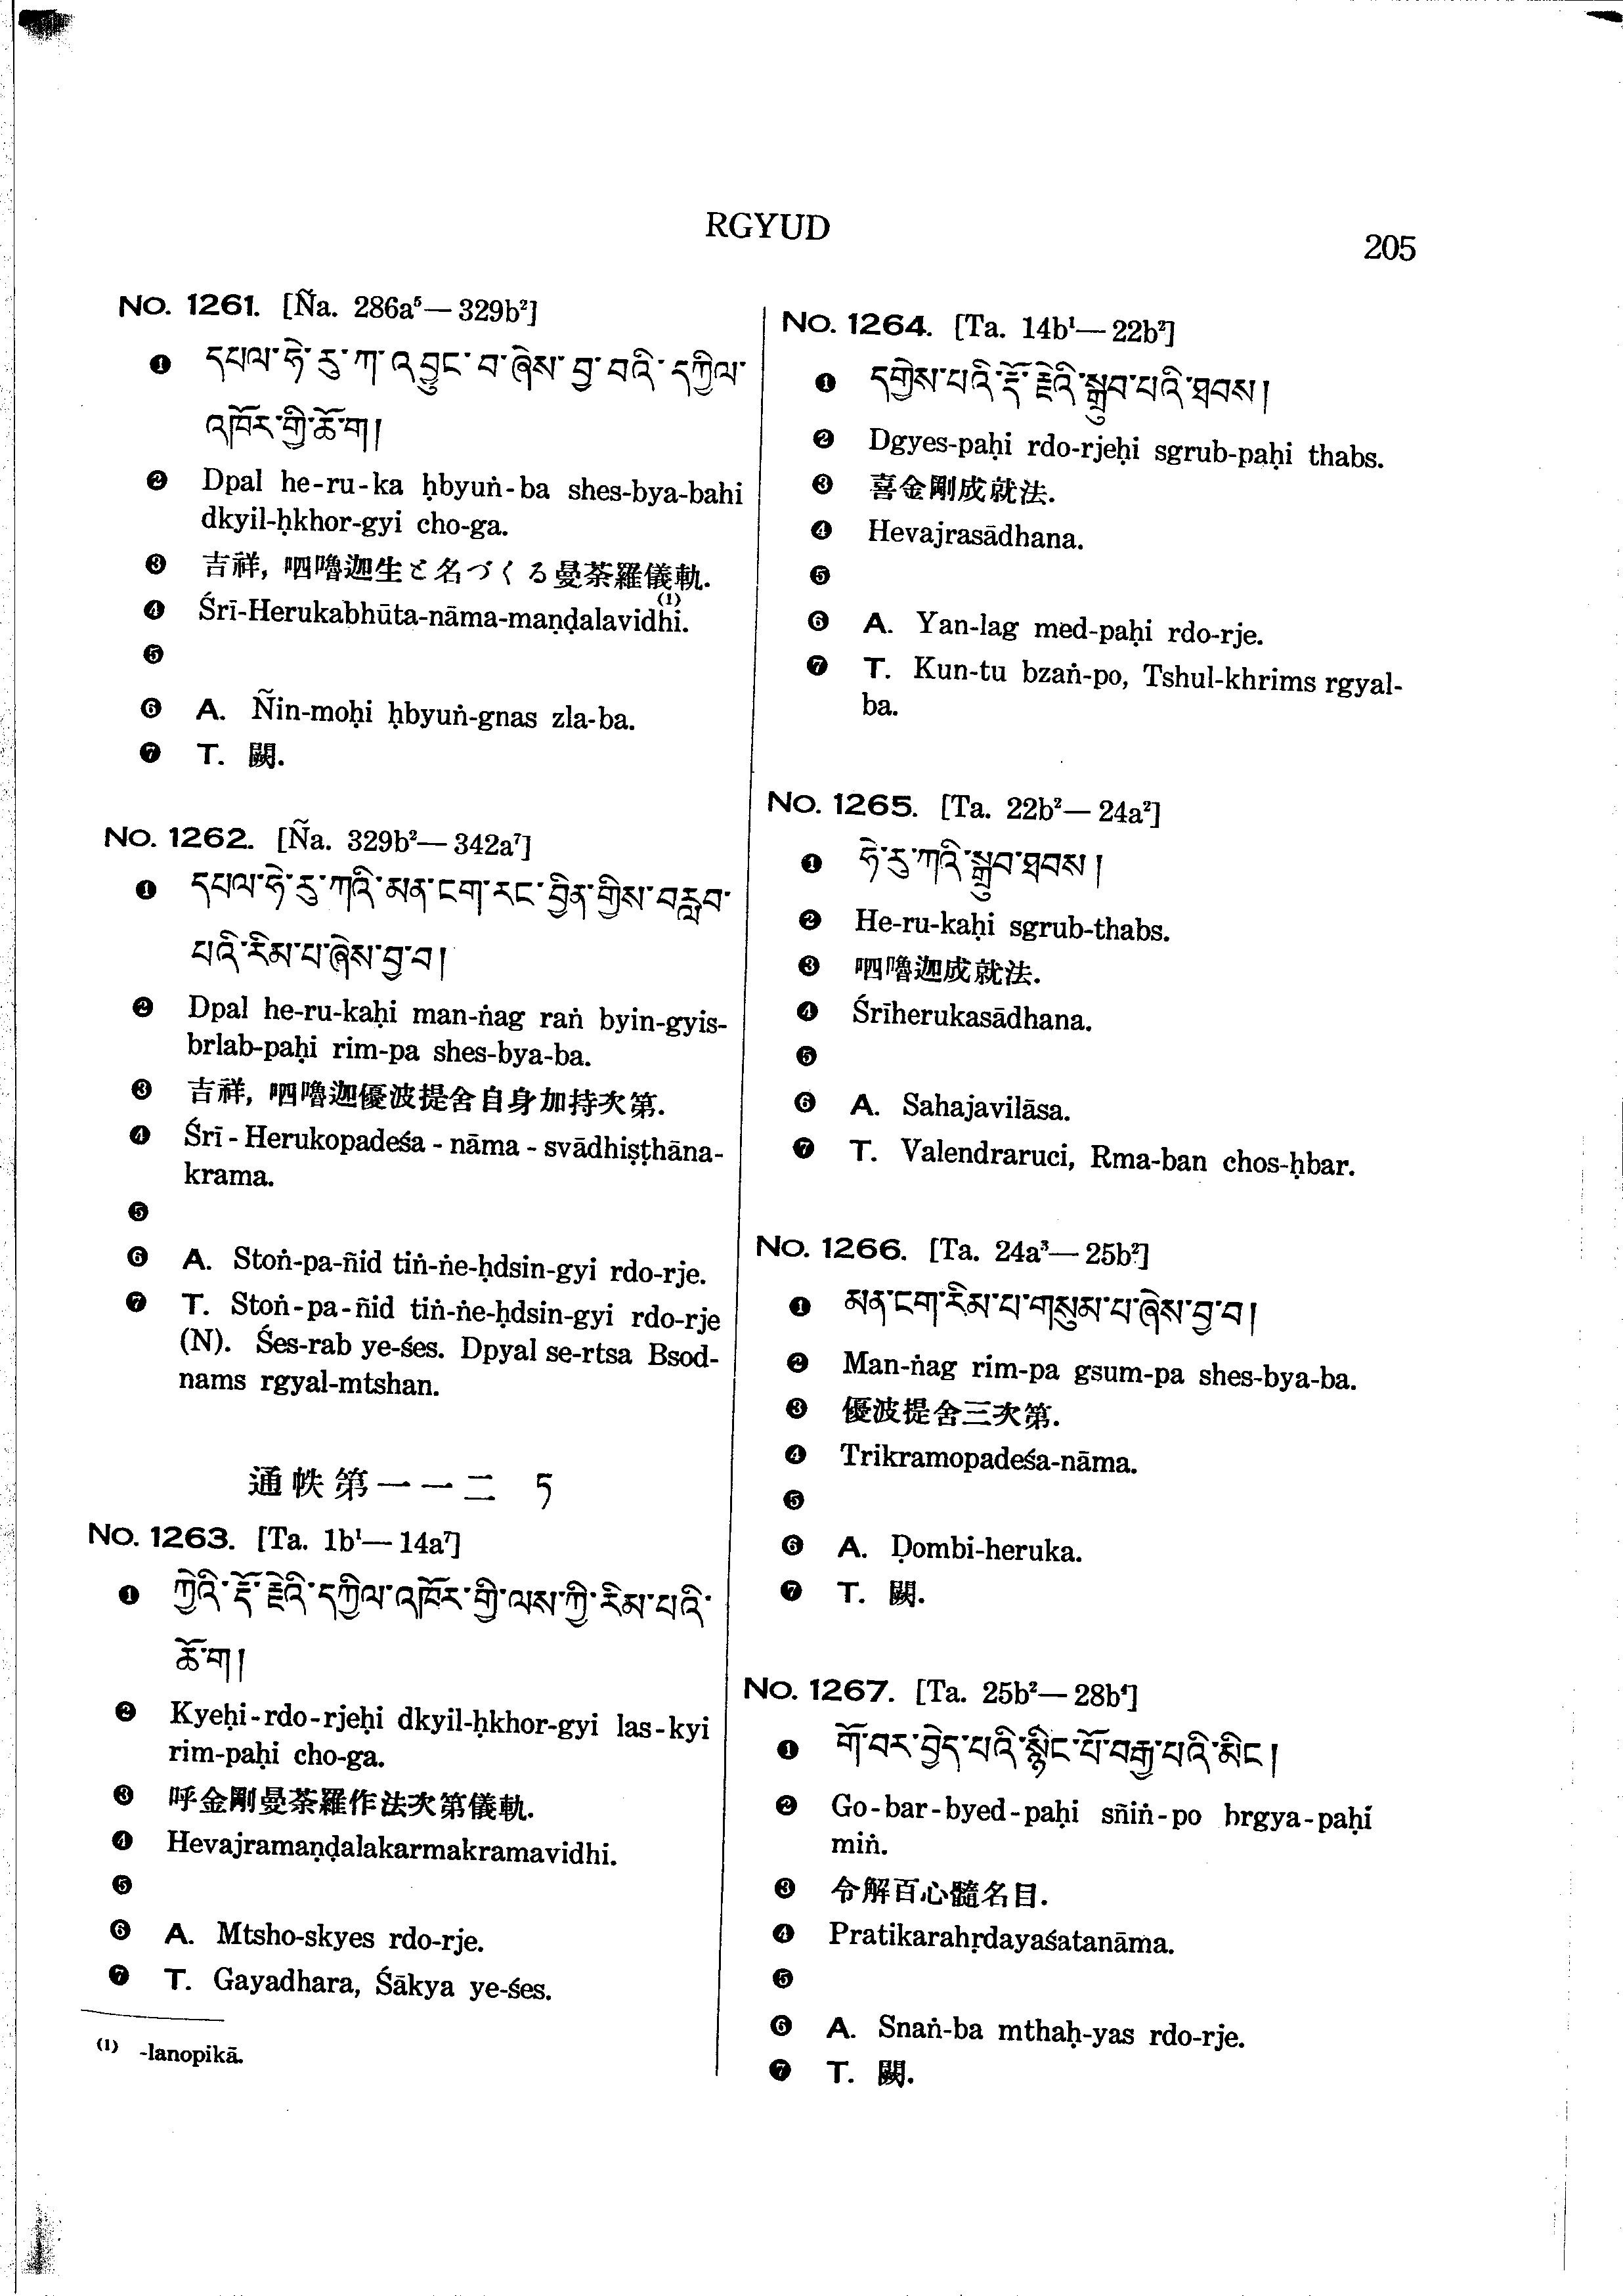 RGYUD
205
No. 1261. [Ña. 286a⁵—329b²]
❶ དཔལ་ཧེ་རུ་ཀ་འབྱུང་བ་ཞེས་བྱ་བའི་དཀྱིལ་
འཁོར་གྱི་ཆོ་ག།
❷ Dpal he-ru-ka ḥbyuṅ-ba shes-bya-bahi
dkyil-ḥkhor-gyi cho-ga.
❸ 吉祥, 呬嚕迦生と名づくる曼荼羅儀軌.
❹ Śrī-Herukabhūta-nāma-maṇḍalavidhi.⁽¹⁾
❺
❻ A. Ñin-moḥi ḥbyuṅ-gnas zla-ba.
❼ T. 闕.
No. 1262. [Ña. 329b²—342a⁷]
❶ དཔལ་ཧེ་རུ་ཀའི་མན་ངག་རང་བྱིན་གྱིས་བརླབ་
པའི་རིམ་པ་ཞེས་བྱ་བ།
❷ Dpal he-ru-kaḥi man-ṅag raṅ byin-gyis-
brlab-paḥi rim-pa shes-bya-ba.
❸ 吉祥, 呬嚕迦優波提舍自身加持次第.
❹ Śrī-Herukopadeśa-nāma-svādhiṣṭhāna-
krama.
❺
❻ A. Stoṅ-pa-ñid tiṅ-ṅe-ḥdsin-gyi rdo-rje.
❼ T. Stoṅ-pa-ñid tiṅ-ṅe-ḥdsin-gyi rdo-rje
(N). Śes-rab ye-śes. Dpyal se-rtsa Bsod-
nams rgyal-mtshan.
通帙第一一二 ཏ
No. 1263. [Ta. 1b¹—14a⁷]
❶ ཀྱེའི་རྡོ་རྗེའི་དཀྱིལ་འཁོར་གྱི་ལས་ཀྱི་རིམ་པའི་
ཆོ་ག།
❷ Kyeḥi-rdo-rjeḥi dkyil-ḥkhor-gyi las-kyi
rim-paḥi cho-ga.
❸ 呼金剛曼荼羅作法次第儀軌.
❹ Hevajramaṇḍalakarmakramavidhi.
❺
❻ A. Mtsho-skyes rdo-rje.
❼ T. Gayadhara, Śākya ye-śes.
⁽¹⁾ -lanopikā.
No. 1264. [Ta. 14b¹—22b²]
❶ དགྱེས་པའི་རྡོ་རྗེའི་སྒྲུབ་པའི་ཐབས།
❷ Dgyes-paḥi rdo-rjeḥi sgrub-paḥi thabs.
❸ 喜金剛成就法.
❹ Hevajrasādhana.
❺
❻ A. Yan-lag med-paḥi rdo-rje.
❼ T. Kun-tu bzaṅ-po, Tshul-khrims rgyal-
ba.
No. 1265. [Ta. 22b²—24a²]
❶ ཧེ་རུ་ཀའི་སྒྲུབ་ཐབས།
❷ He-ru-kaḥi sgrub-thabs.
❸ 呬嚕迦成就法.
❹ Śrīherukasādhana.
❺
❻ A. Sahajavilāsa.
❼ T. Valendraruci, Rma-ban chos-ḥbar.
No. 1266. [Ta. 24a³—25b²]
❶ མན་ངག་རིམ་པ་གསུམ་པ་ཞེས་བྱ་བ།
❷ Man-ṅag rim-pa gsum-pa shes-bya-ba.
❸ 優波提舍三次第.
❹ Trikramopadeśa-nāma.
❺
❻ A. Ḍombi-heruka.
❼ T. 闕.
No. 1267. [Ta. 25b²—28b⁴]
❶ གོ་བར་བྱེད་པའི་སྙིང་པོ་བརྒྱ་པའི་མིང།
❷ Go-bar-byed-paḥi sñiṅ-po hrgya-paḥi
miṅ.
❸ 令解百心髓名目.
❹ Pratikarahṛdayaśatanāma.
❺
❻ A. Snaṅ-ba mthaḥ-yas rdo-rje.
❼ T. 闕.